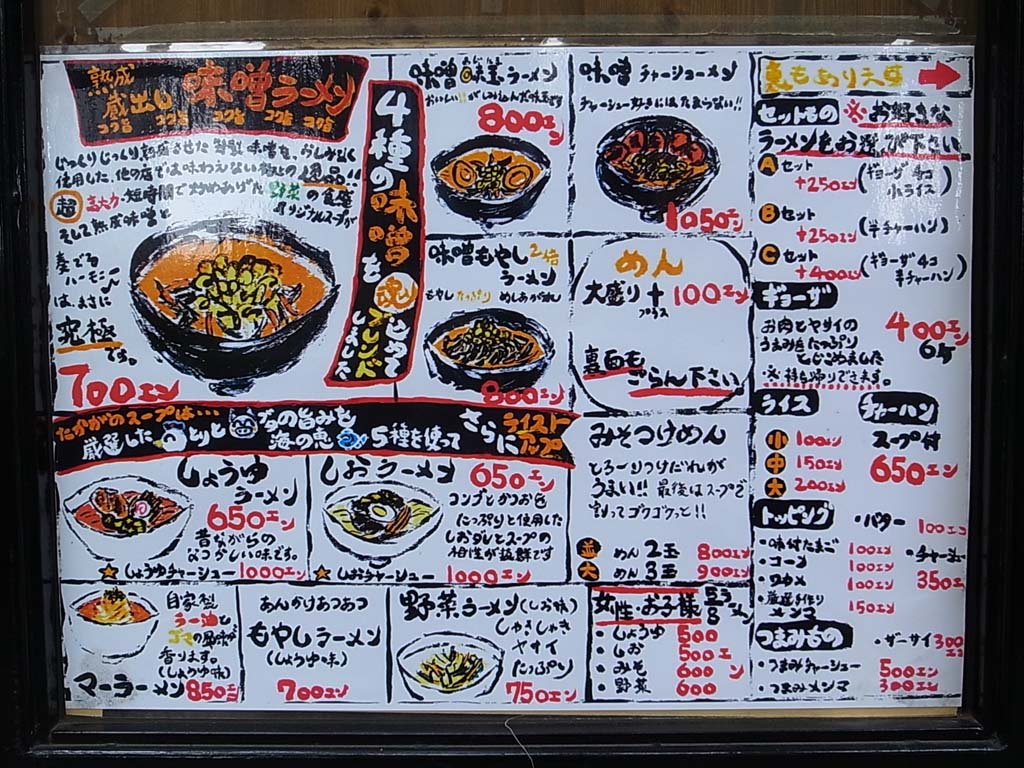 熟成
蔵出し 味噌ラーメン
コク旨 コク旨 コク旨 コク旨 コク旨
じっくりじっくり熟成させた特製味噌を、おしみなく
使用した、他の店では味わえない
逸品!!
超 高火力・短時間で大火めあげた 野菜の
オリジナルスープが
そして熟成味噌と
奏でる
ハーモニー
は、まさに
究極
です。
700エン
4種の味噌を魂こめて
ブレンド
しました
味噌味玉ラーメン
おいしい!!がしみ込んだ味玉です
800エン
味噌もやし2倍
ラーメン
もやしたっぷり めしあがれ
800エン
味噌チャーシューメン
チャーシュー好きにはたまらない!!
1050エン
めん
大盛り+100エン
プラス
裏面も
ごらん下さい
たかがのスープは…
厳選したとりとブタの旨みを
海の恵 5種を使って
さらに
ライスト
アップ
しょうゆ
ラーメン
650エン
昔ながらの
なつかしい味です。
★しょうゆチャーシュー 1000エン
しおラーメン
650エン
コンブとかつおを
たっぷりと使用した
しおダレとスープの
相性が抜群です
★しおチャーシュー 1000エン
みそつけめん
とろーりつけだれが
うまい!! 最後はスープで
割ってゴクゴクっと!!
並 めん2玉 800エン
大 めん3玉 900エン
自家製
ラー油と
ゴマの風味が
香ります。
(しょうゆ味)
マーラーメン 850エン
あんかけあつあつ
もやしラーメン
(しょうゆ味)
700エン
野菜ラーメン(しお味)
しゃきしゃき
ヤサイ
たっぷり
750エン
女性・お子様
・しょうゆ 500
・しお 500エ
・みそ 600ン
・野菜 600
裏もあり〼
セットもの ※お好きな
ラーメンをお選び下さい
Aセット
+250エン(ギョーザ4コ
小ライス)
Bセット
+250エン(半チャーハン)
Cセット
+400エン(ギョーザ4コ
半チャーハン)
ギョーザ
お肉とヤサイの
うまみをたっぷり
とじこめました
※持ち帰りできます。
400エン
6ケ
ライス
小 100エン
中 150エン
大 200エン
チャーハン
スープ付
650エン
トッピング
・味付たまご 100エン
・コーン 100エン
・ワカメ 100エン
・厳選手作り
メンマ 150エン
・バター 100エン
・チャーシュー 350エン
つまみもの
・ザーサイ 300エン
・つまみチャーシュー 500エン
・つまみメンマ 300エン